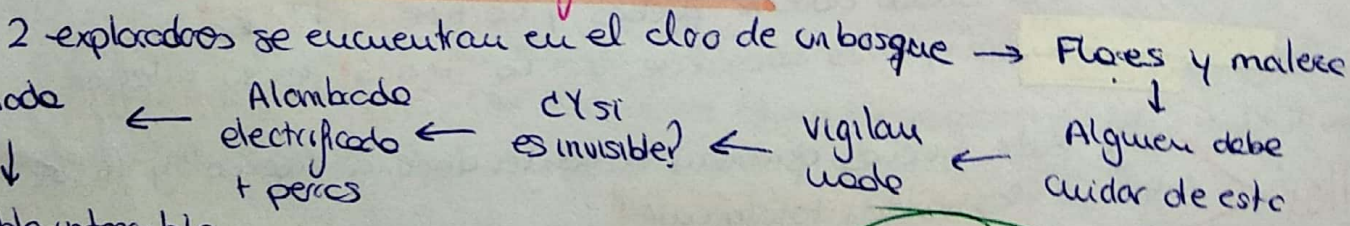 2 exploradores se encuentran en el claro de un bosque → Flores y malez
↓
Alguien debe
cuidar de esto
← vigilan
nada
← ¿Y si
es invisible?
← Alambrado
electrificado
+ perros
← ada
↓